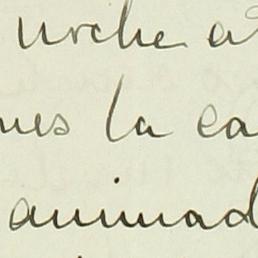 urche a
nes la ca
animad